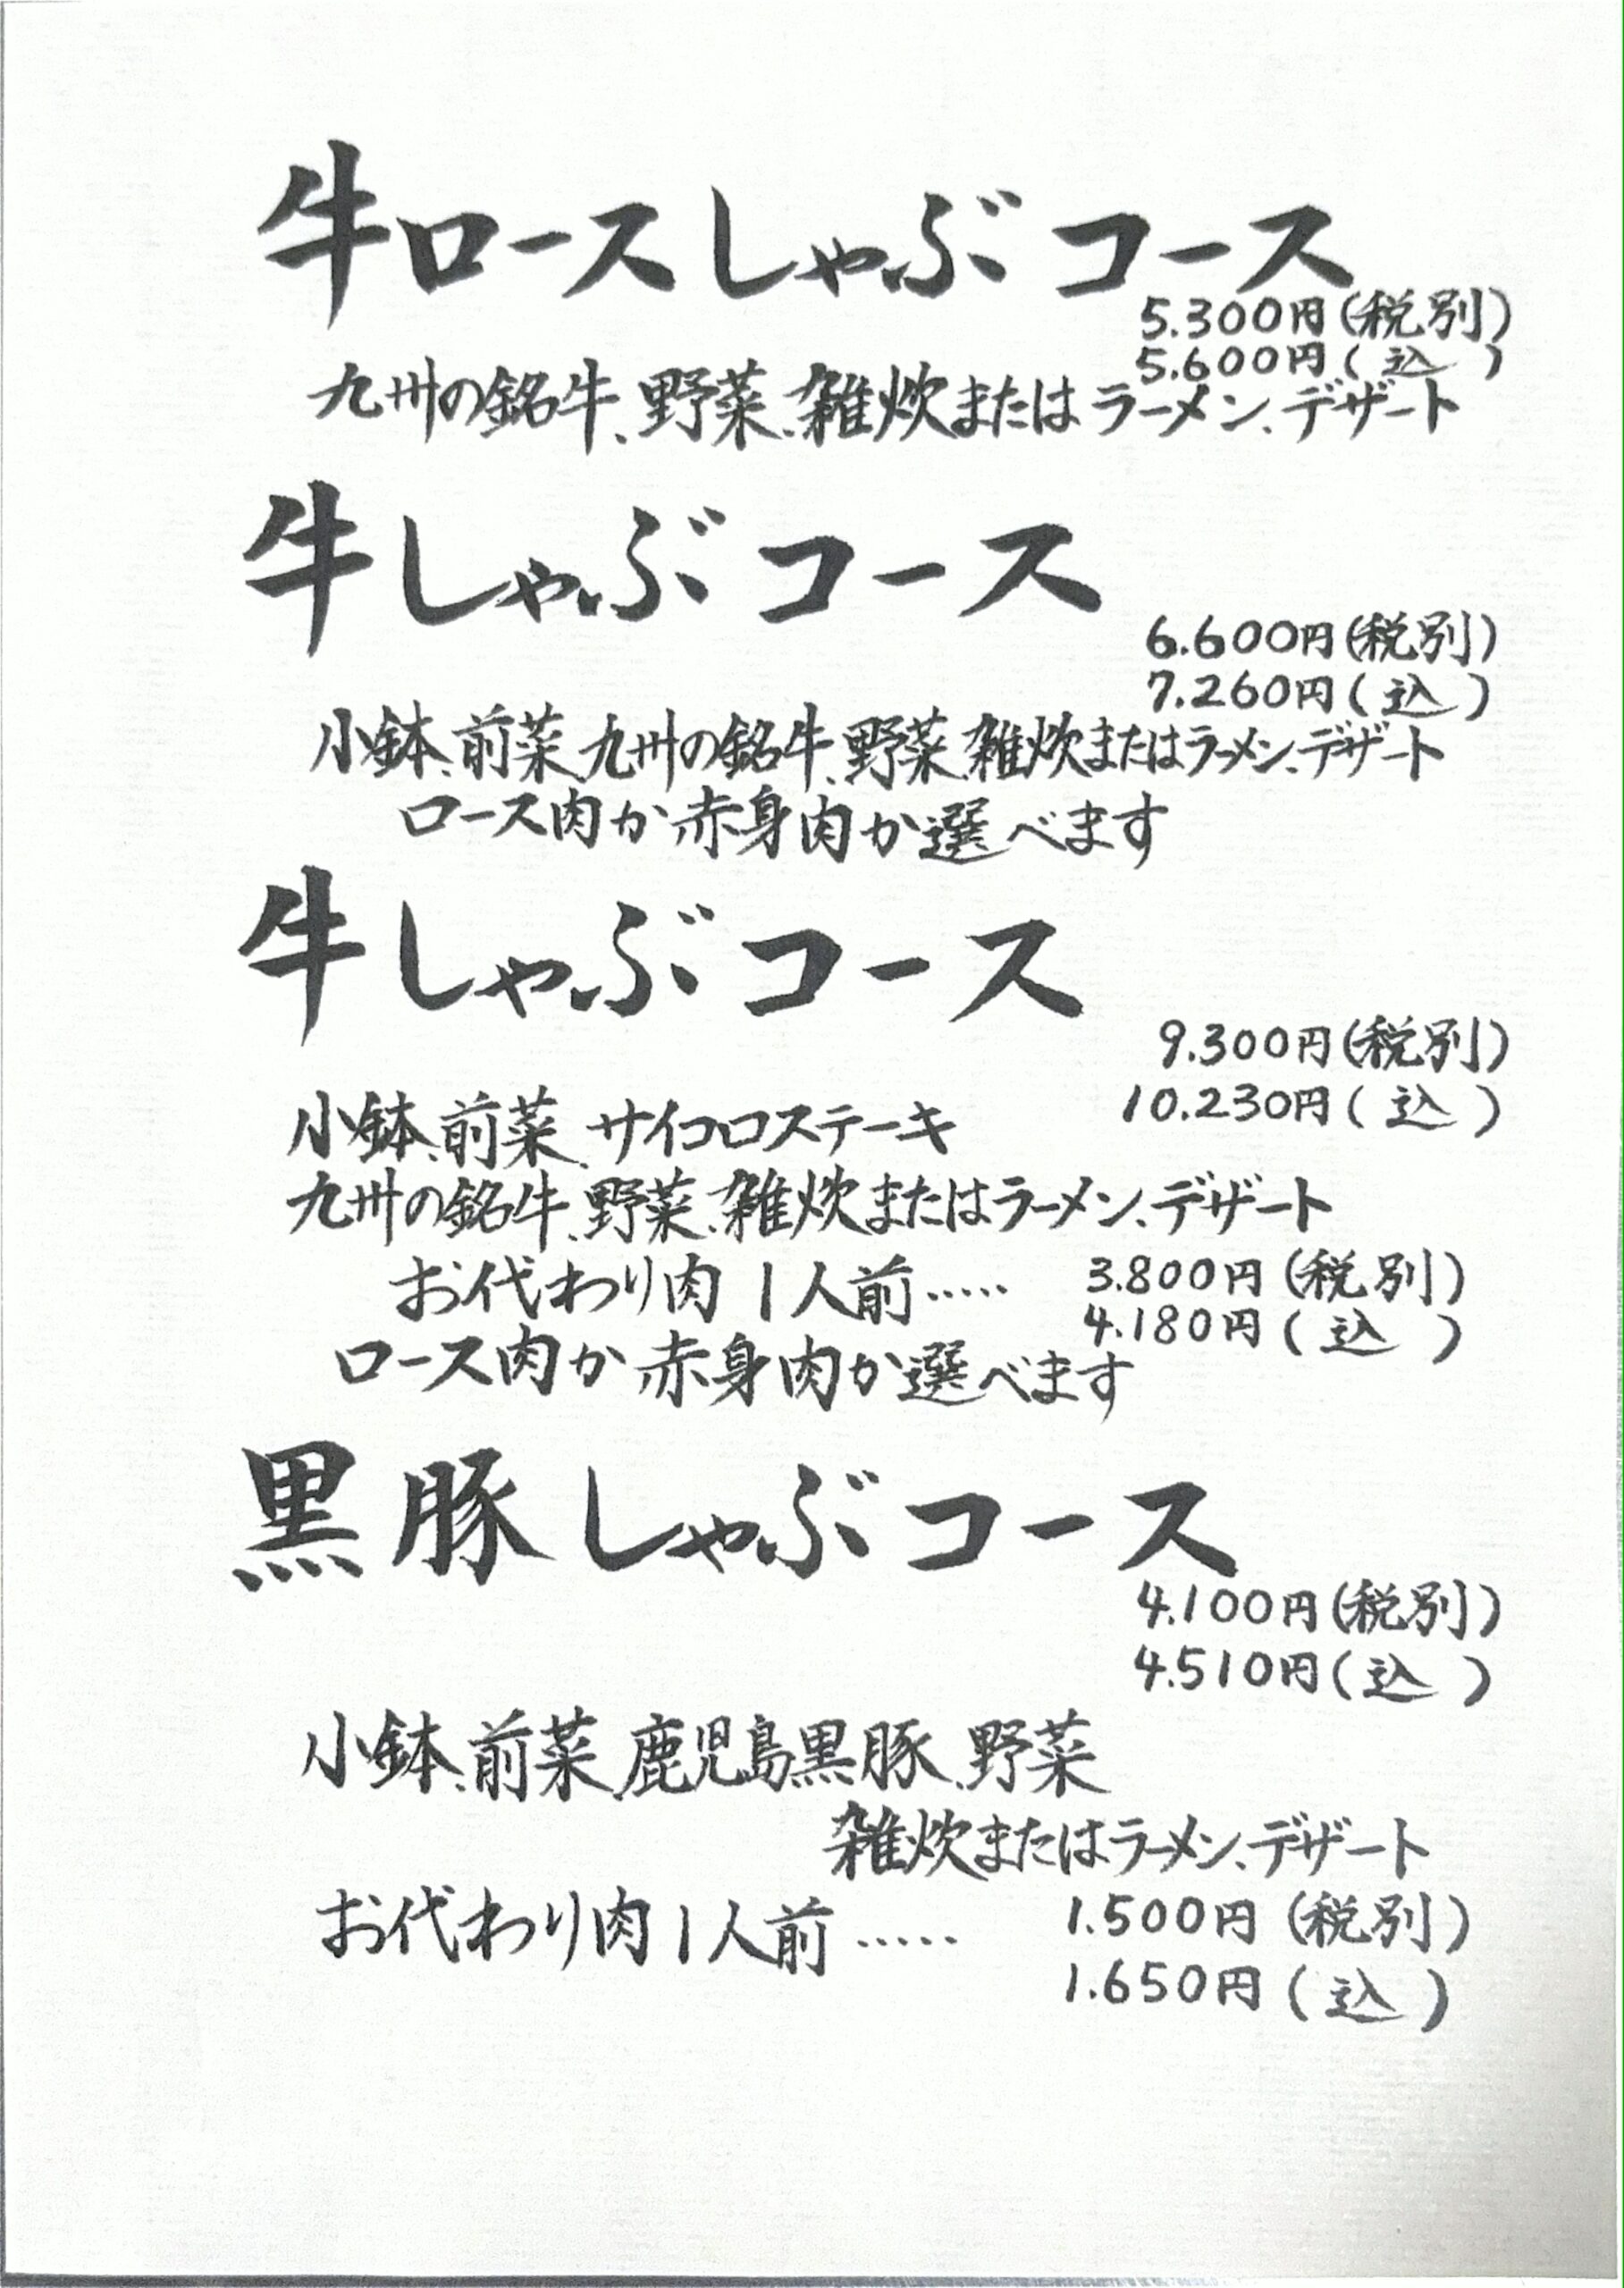 牛ロースしゃぶコース
5.300円(税別)
5.600円(込)
九州の銘牛、野菜、雑炊またはラーメン、デザート
牛しゃぶコース
6.600円(税別)
7.260円(込)
小鉢、前菜、九州の銘牛、野菜、雑炊またはラーメン、デザート
ロース肉か赤身肉か選べます
牛しゃぶコース
9.300円(税別)
10.230円(込)
小鉢、前菜、サイコロステーキ
九州の銘牛、野菜、雑炊またはラーメン、デザート
お代わり肉 1人前‥‥‥ 3.800円(税別)
4.180円(込)
ロース肉か赤身肉か選べます
黒豚しゃぶコース
4.100円(税別)
4.510円(込)
小鉢、前菜、鹿児島黒豚、野菜
雑炊またはラーメン、デザート
お代わり肉1人前‥‥‥ 1.500円(税別)
1.650円(込)